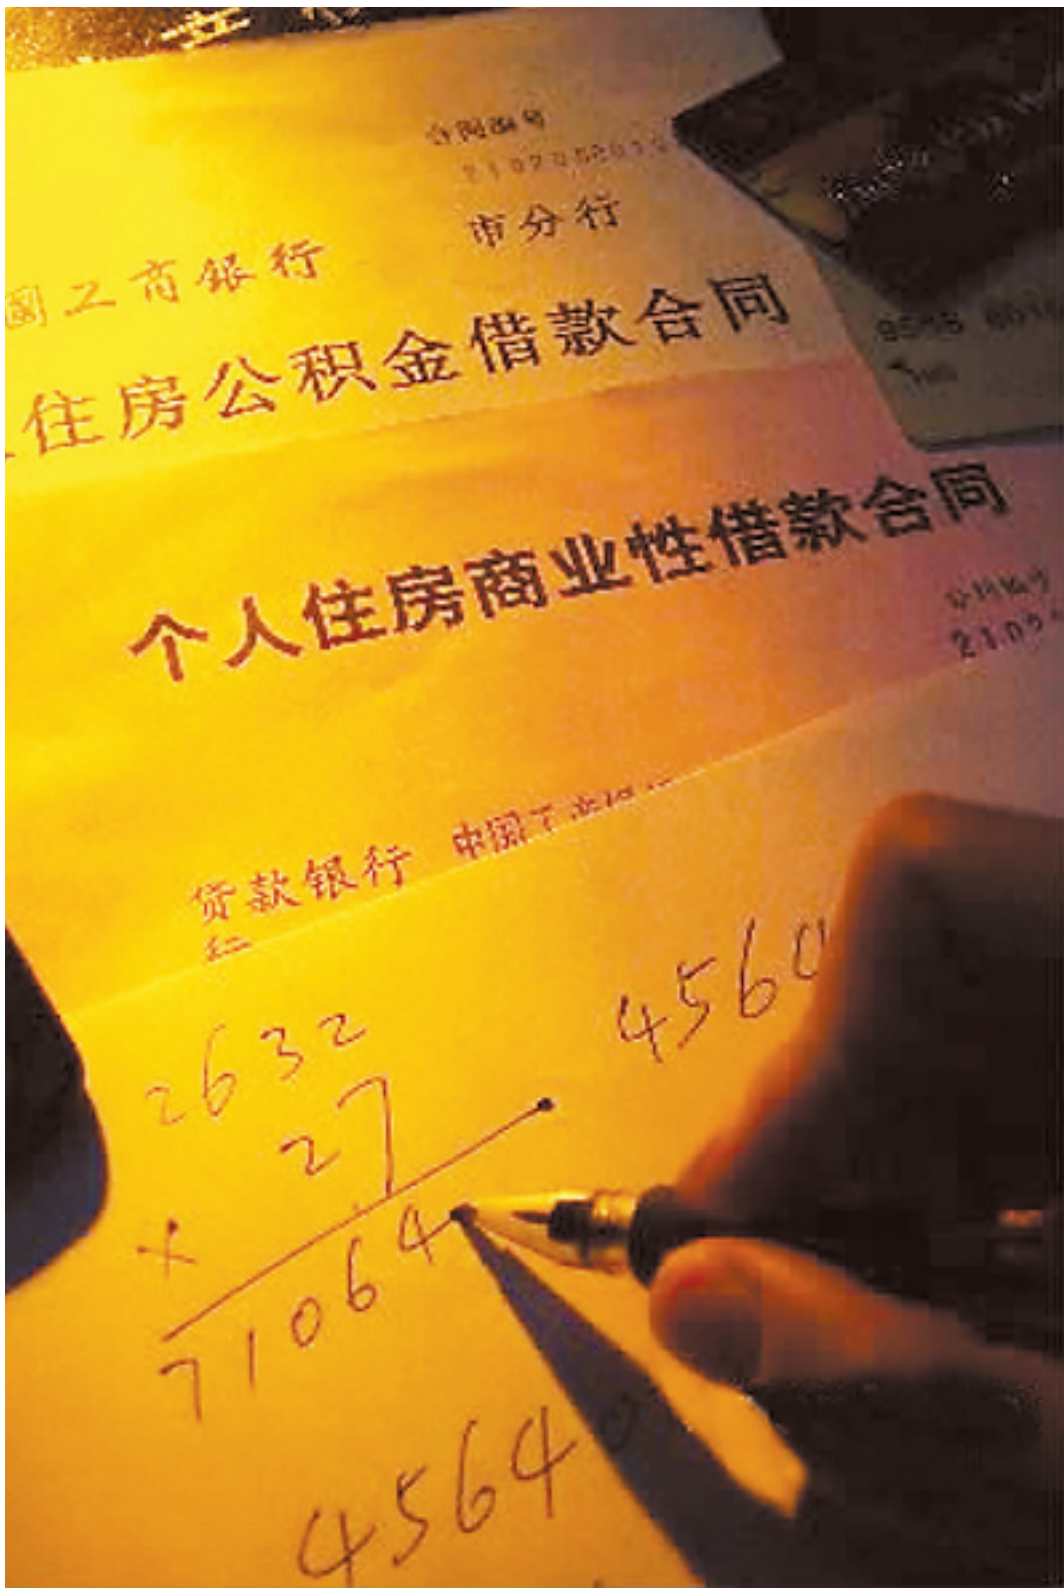 合同编号
市分行
國工商銀行
住房公积金借款合同
个人住房商业性借款合同
合同编号
贷款银行 中国工商
2632
27
×
71064
4560
4564